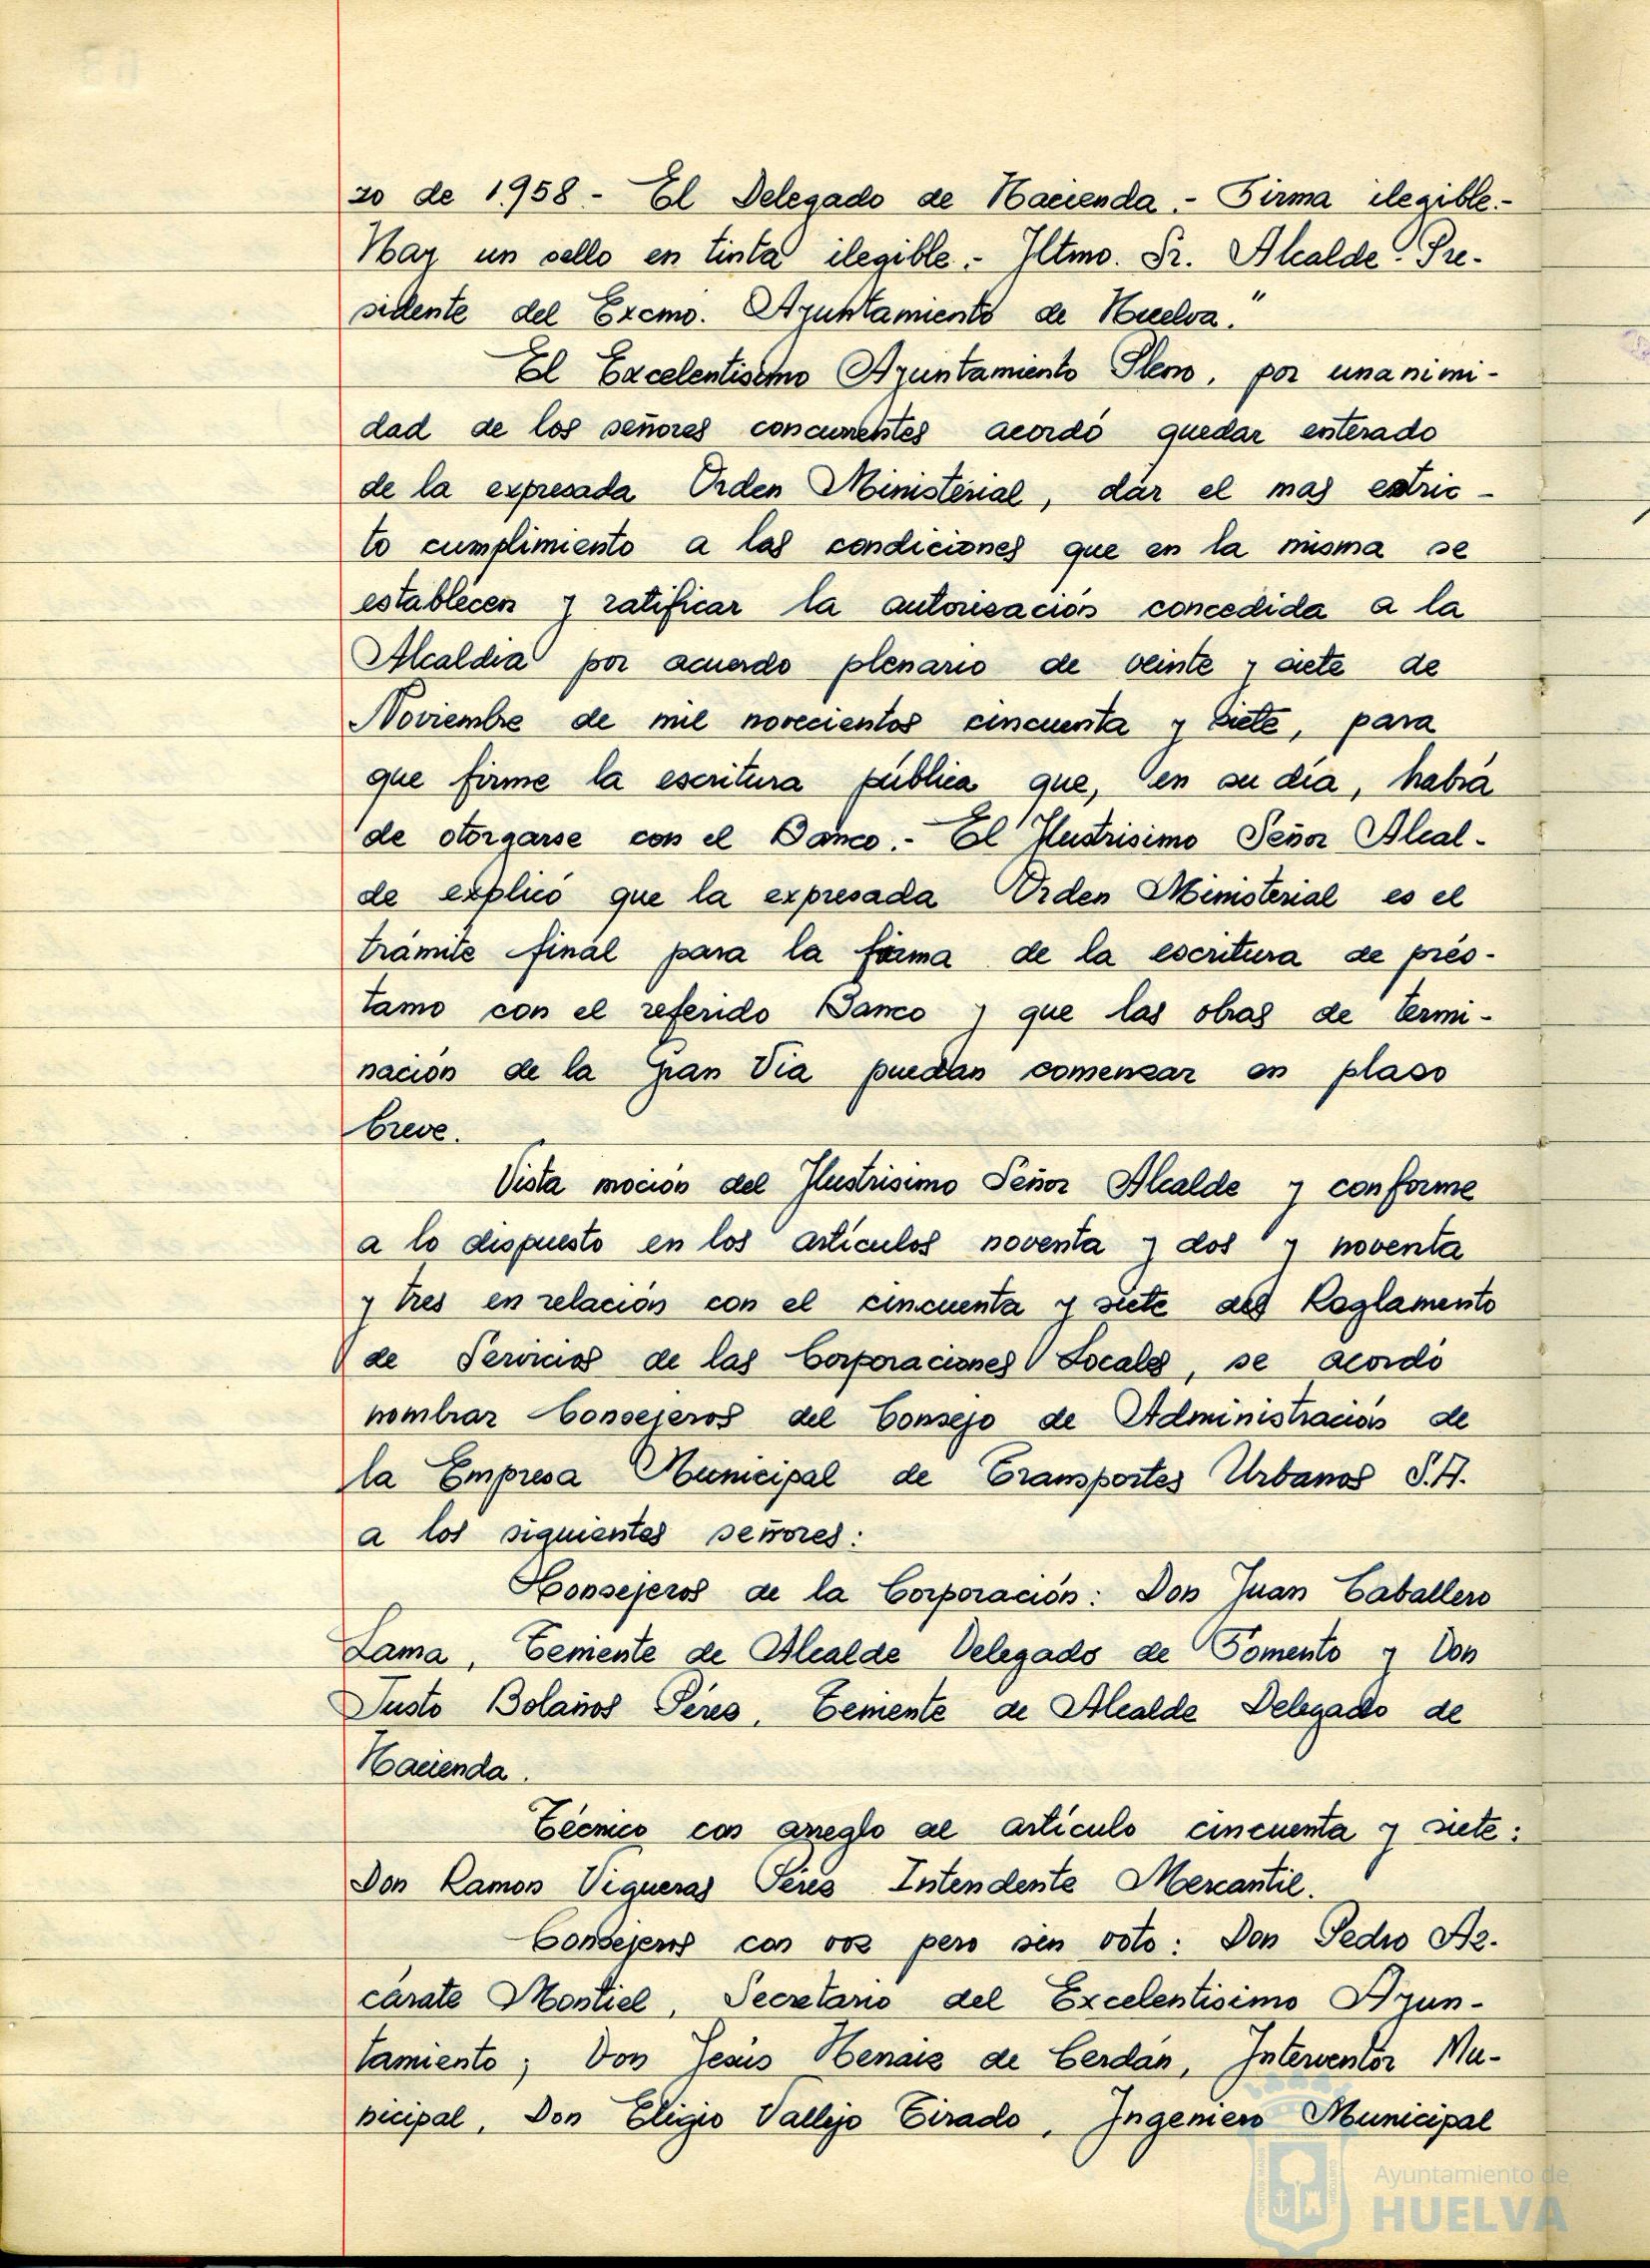 zo de 1.958 - El Delegado de Hacienda.- Firma ilegible.-
Hay un sello en tinta ilegible.- Iltmo. Sr. Alcalde-Pre-
sidente del Excmo. Ayuntamiento de Huelva."
El Excelentísimo Ayuntamiento Pleno, por unanimi-
dad de los señores concurrentes acordó quedar enterado
de la expresada Orden Ministerial, dar el mas estric-
to cumplimiento a las condiciones que en la misma se
establecen y ratificar la autorización concedida a la
Alcaldía por acuerdo plenario de veinte y siete de
Noviembre de mil novecientos cincuenta y siete, para
que firme la escritura pública que, en su día, habrá
de otorgarse con el Banco.- El Ilustrisimo Señor Alcal-
de explicó que la expresada Orden Ministerial es el
trámite final para la firma de la escritura de prés-
tamo con el referido Banco y que las obras de termi-
nación de la Gran Vía puedan comenzar en plazo
breve.
Vista moción del Ilustrisimo Señor Alcalde y conforme
a lo dispuesto en los artículos noventa y dos y noventa
y tres en relación con el cincuenta y siete del Reglamento
de Servicios de las Corporaciones Locales, se acordó
nombrar Consejeros del Consejo de Administración de
la Empresa Municipal de Transportes Urbanos S.A.
a los siguientes señores:
Consejeros de la Corporación: Don Juan Caballero
Lama, Teniente de Alcalde Delegado de Fomento y Don
Justo Bolaños Pérez, Teniente de Alcalde Delegado de
Hacienda.
Técnico con arreglo al artículo cincuenta y siete:
Don Ramon Vigueras Pérez Intendente Mercantil.
Consejeros con voz pero sin voto: Don Pedro Az-
cárate Montiel, Secretario del Excelentisimo Ayun-
tamiento; Don Jesús Henaiz de Cerdán, Interventor Mu-
nicipal, Don Eligio Vallejo Tirado, Ingeniero Municipal
Ayuntamiento de
HUELVA